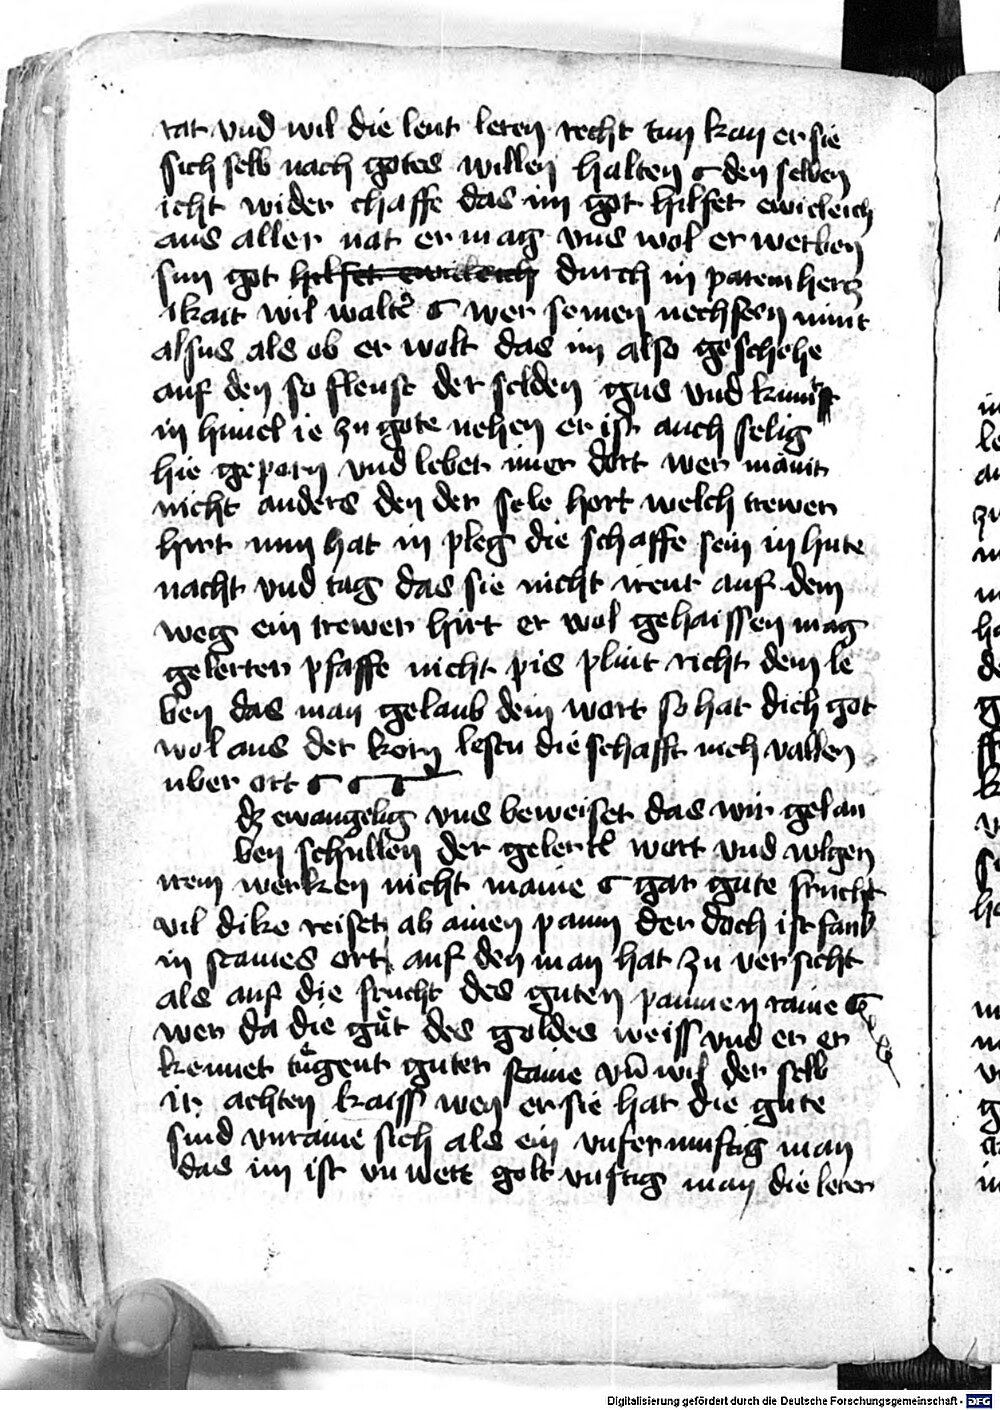 rat vnd wil die leut leren recht tun kan er sie
sich selb nach gotes willen halten den selben
icht wider chaffe das im got hilfet ewicleich
aus aller nat er mag vns wol er werben
sun got hilfet ewicleich durch in parmhercz
ikait wil waltē wer seinen nechsten mint
alsus als ob er wolt das im also geschehe
auf den so fleust der selden gus vnd kumt
in himel ie zu gote nehen er ist auch selig
hie geporn vnd lebet imer dort wer maint
nicht anders den der sele hort welch trewer
hirt nun hat in pfleg die schaffe sein in hute
nacht vnd tag das sie nicht irent auf dem
weg ein trewer hirt er wol gehaissen mag
gelerter pfaffe nicht pis plint richt dein le
ben das man gelaub dein wort so hat dich got
wol aus der korn lesen die schafft nich vallen
uber ort
dz ewangelig vns beweiset das wir gelau
ben schullen der gelertē wort vnd volgen
irem werken nicht maine gar gute frucht
vil dike reiset ab ainen paum der doch ist faul
in staines ort auf den man hat zu versicht
als auf die frucht des guten paumen raine
wer da die güt des goldes weiss vnd er er
kennet tugent guter staine vn̄ wil der selb
ir achten kaiss wen er sie hat die gute
sind vnraine sich als ein vnfernuftig man
das im ist vnwett golt vnftig man die lerer
Digitalisierung gefördert durch die Deutsche Forschungsgemeinschaft - DFG